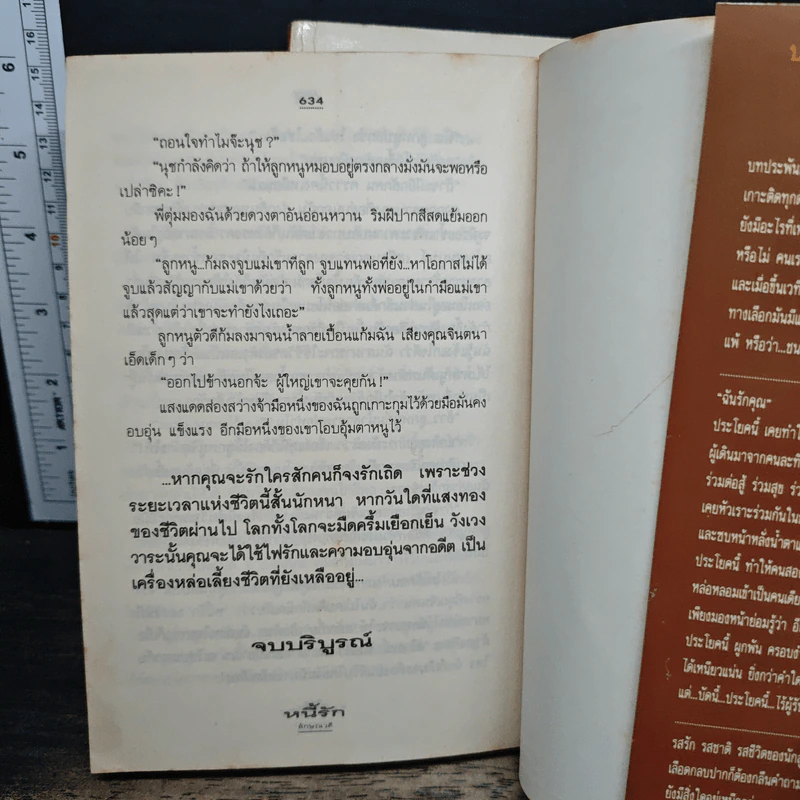 634
"ถอนใจทำไมจ๊ะนุช ?"
"นุชกำลังคิดว่า ถ้าให้ลูกหนูหมอบอยู่ตรงกลางมั่งมันจะพอหรือ
เปล่าซิคะ !"
พี่ตุ่มมองฉันด้วยดวงตาอันอ่อนหวาน ริมฝีปากสีสดแย้มออก
น้อยๆ
"ลูกหนู...ก้มลงจูบแม่เขาทีลูก จูบแทนพ่อที่ยัง...หาโอกาสไม่ได้
จูบแล้วสัญญากับแม่เขาด้วยว่า ทั้งลูกหนูทั้งพ่ออยู่ในกำมือแม่เขา
แล้วสุดแต่ว่าเขาจะทำยังไงเถอะ"
ลูกหนูตัวดีก้มลงมาจนน้ำลายเปื้อนแก้มฉัน เสียงคุณจินตนา
เอ็ดเด็กๆ ว่า
"ออกไปข้างนอกจ้ะ ผู้ใหญ่เขาจะคุยกัน !"
แสงแดดส่องสว่างจ้ามือหนึ่งของฉันถูกเกาะกุมไว้ด้วยมือมั่นคง
อบอุ่น แข็งแรง อีกมือหนึ่งของเขาโอบอุ้มตาหนูไว้
...หากคุณจะรักใครสักคนก็จงรักเถิด เพราะช่วง
ระยะเวลาแห่งชีวิตนี้สั้นนักหนา หากวันใดที่แสงทอง
ของชีวิตผ่านไป โลกทั้งโลกจะมืดครึ้มเยือกเย็น วังเวง
วาระนั้นคุณจะได้ใช้ไฟรักและความอบอุ่นจากอดีต เป็น
เครื่องหล่อเลี้ยงชีวิตที่ยังเหลืออยู่...
จบบริบูรณ์
หนี้รัก
บทประพัน
เกาะติดทุกต
ยังมีอะไรที่เ
หรือไม่ คนเร
และเมื่อขึ้นเวที
ทางเลือกมันมีแ
แพ้ หรือว่า...ชน
"ฉันรักคุณ"
ประโยคนี้ เคยทำใ
ผู้เดินมาจากคนละที
ร่วมต่อสู้ ร่วมสุข ร่ว
เคยหัวเราะร่วมกันใน
และซบหน้าหลั่งน้ำตา
ประโยคนี้ ทำให้คนสอง
หล่อหลอมเข้าเป็นคนเดีย
เพียงมองหน้าย่อมรู้ว่า อี
ประโยคนี้ ผูกพัน ครอบง
ได้เหนียวแน่น ยิ่งกว่าคำใด
แต่...บัดนี้...ประโยคนี้...ไร้ผู้รับ
รสรัก รสชาติ รสชีวิตของนัก
เลือดกลบปากก็ต้องกลืนคำถาม